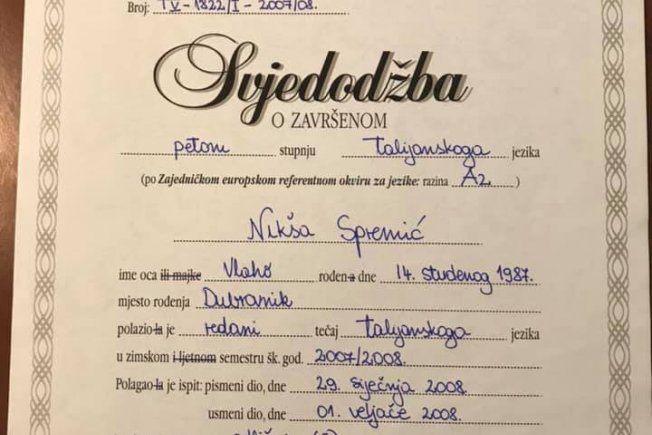 Broj: TV-1822/I-2007/08.
Svjedodžba
O ZAVRŠENOM
petom stupnju talijanskoga jezika
(po Zajedničkom europskom referentnom okviru za jezike: razina A2)
Nikša Spremić
ime oca ili majke Vlaho rođen-a dne 14. studenog 1987.
mjesto rođenja Dubrovnik
polazio-la je redovni tečaj talijanskoga jezika
u zimskom i ljetnom semestru šk. god. 2007/2008.
Polagao-la je ispit: pismeni dio, dne 29. siječnja 2008.
usmeni dio, dne 01. veljače 2008.